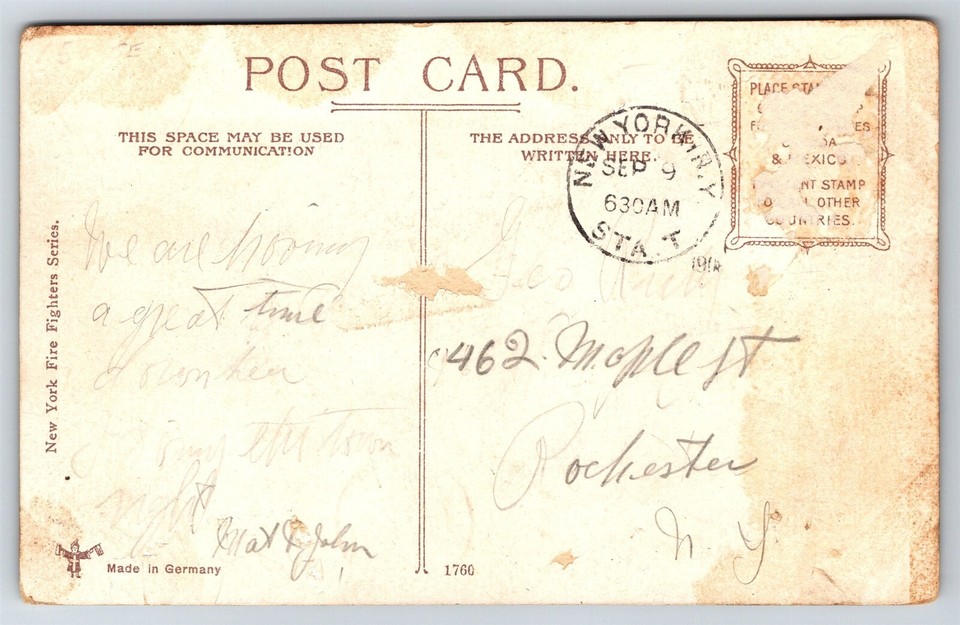 POST CARD.
THIS SPACE MAY BE USED
FOR COMMUNICATION
THE ADDRESS ONLY TO BE
WRITTEN HERE.
NEW YORK, N.Y.
SEP 9
630AM
STA. T
PLACE STA
ES
& MEXICO
NT STAMP
OTHER
COUNTRIES.
New York Fire Fighters Series.
We are having
a great time
down here
the town
right
Mat & John
Geo
462 Maple St
Rochester
N. Y.
Made in Germany
1760